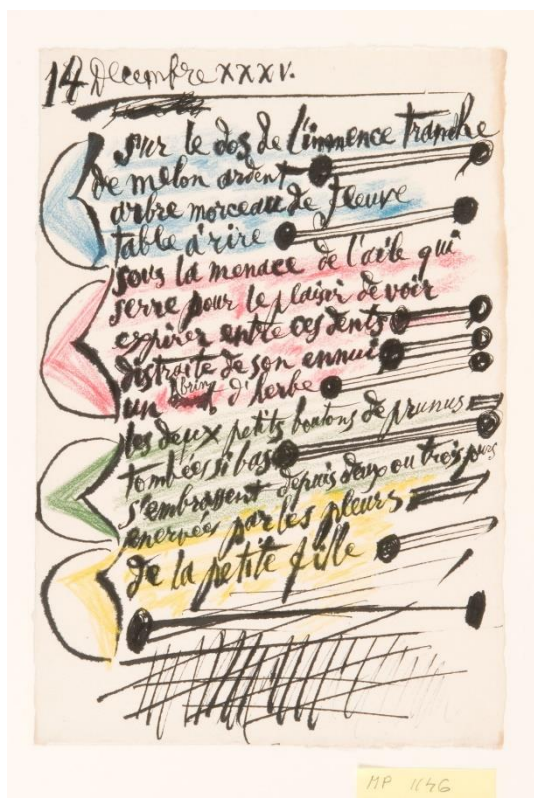 14 Decembre XXXV.
sur le dos de l'immence tranche
de melon ardent
arbre morceau de fleuve
table à rire
sous la menace de l'aile qui
serre pour le plaisir de voir
expirer entre ces dents
distraite de son ennui
un brin d'herbe
les deux petits boutons de prunus
tombées si bas
s'embrassent depuis deux ou trois jours
enervées par les pleurs
de la petite fille
MP 1146